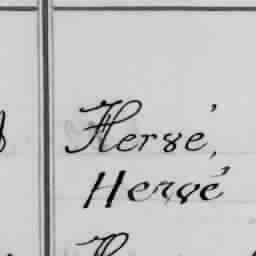 Hervé,
Hervé